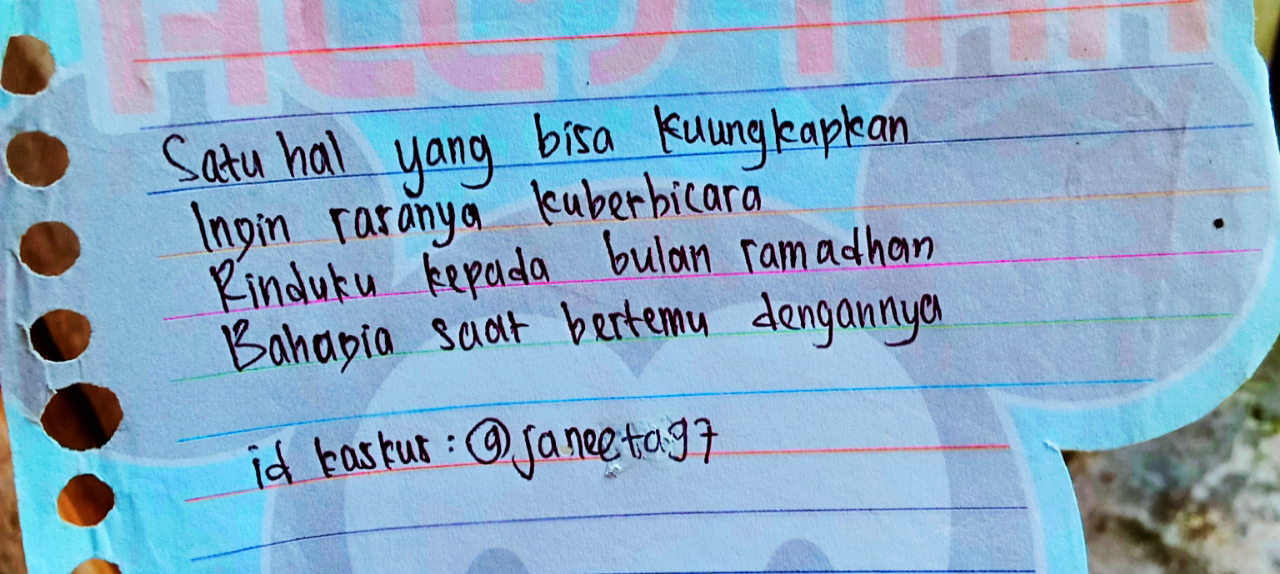 Satu hal yang bisa kuungkapkan
Ingin rasanya kuberbicara
Rinduku kepada bulan ramadhan
Bahagia saat bertemu dengannya
id kaskus : @janeeta97